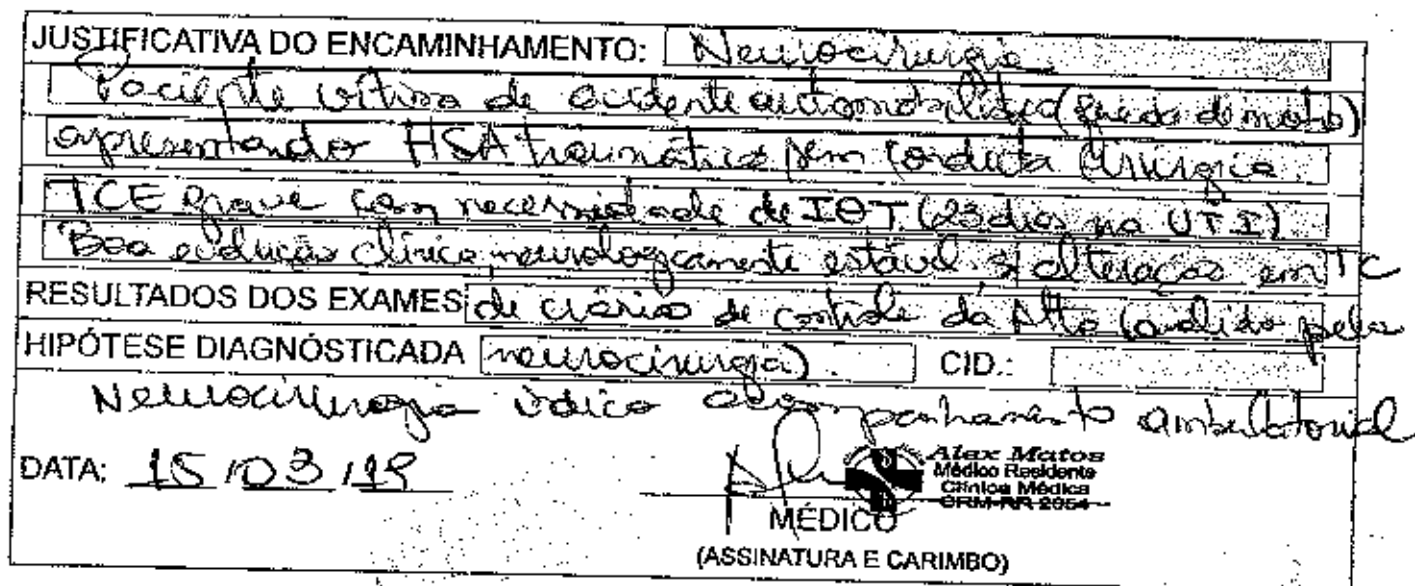 JUSTIFICATIVA DO ENCAMINHAMENTO: Neurocirurgia.
Paciente vítima de acidente automobilístico (queda de moto)
apresentando HSA traumática sem conduta cirurgica
TCE grave com necessidade de IOT (23 dias na UTI)
Boa evolução clínica neurologicamente estável. alteração em TC
RESULTADOS DOS EXAMES de crânio de controle da Alta (avaliado pela
HIPÓTESE DIAGNÓSTICADA neurocirurgia). CID.:
Neurocirurgia indica acompanhamento ambulatorial
DATA: 15/03/19
Alex Matos
Médico Residente
Clínica Médica
CRM-RR 2054
MÉDICO
(ASSINATURA E CARIMBO)